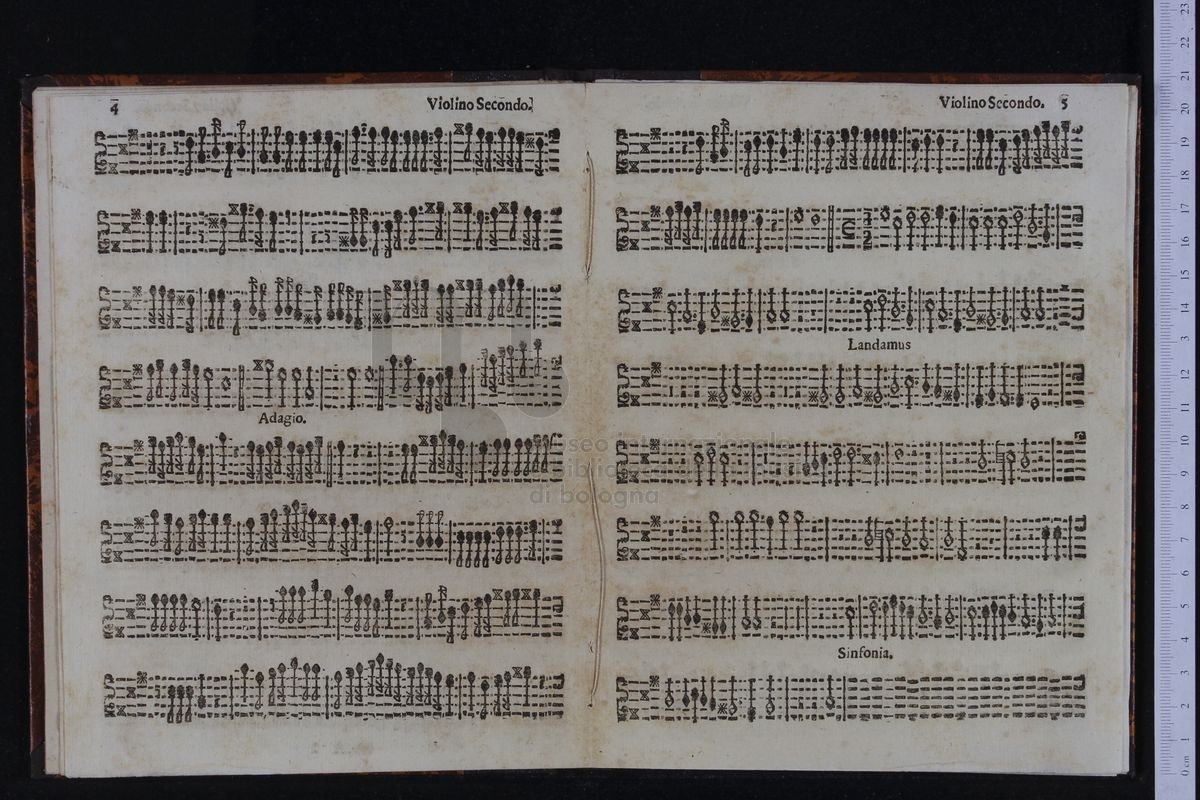 4
Violino Secondo.
Adagio.
Violino Secondo. 5
Landamus
Sinfonia.
museo internazionale
biblioteca
di bologna
0 cm 1 2 3 4 5 6 7 8 9 10 11 12 3 14 15 16 17 18 19 20 21 22 23